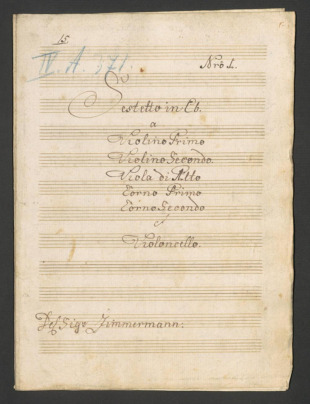 15.
IV. A. 371.
Nro 1.
Sestetto in Eb.
a
Violino Primo
Violino Secondo.
Viola di Alto
Corno Primo
Corno Secondo
e
Violoncello.
Del Sigr Zimmermann.